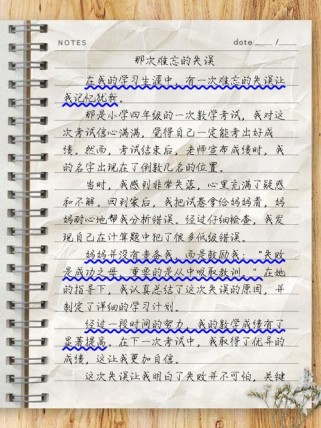 NOTES date ___/___
那次难忘的失误
在我的学习生涯中，有一次难忘的失误让
我记忆犹新。
那是小学四年级的一次数学考试，我对这
次考试信心满满，觉得自己一定能考出好成
绩。然而，考试结束后，老师宣布成绩时，我
的名字出现在了倒数几名的位置。
当时，我感到非常失落，心里充满了疑惑
和不解。回到家后，我把试卷拿给妈妈看，妈
妈耐心地帮我分析错误。经过仔细检查，我发
现自己在计算题中犯了很多低级错误。
妈妈并没有责备我，而是鼓励我，“失败
是成功之母，重要的是从中吸取教训。”在她
的指导下，我认真总结了这次失误的原因，并
制定了详细的学习计划。
经过一段时间的努力，我的数学成绩有了
显著提高。在下一次考试中，我取得了优异的
成绩，这让我更加自信。
这次失误让我明白了失败并不可怕，关键